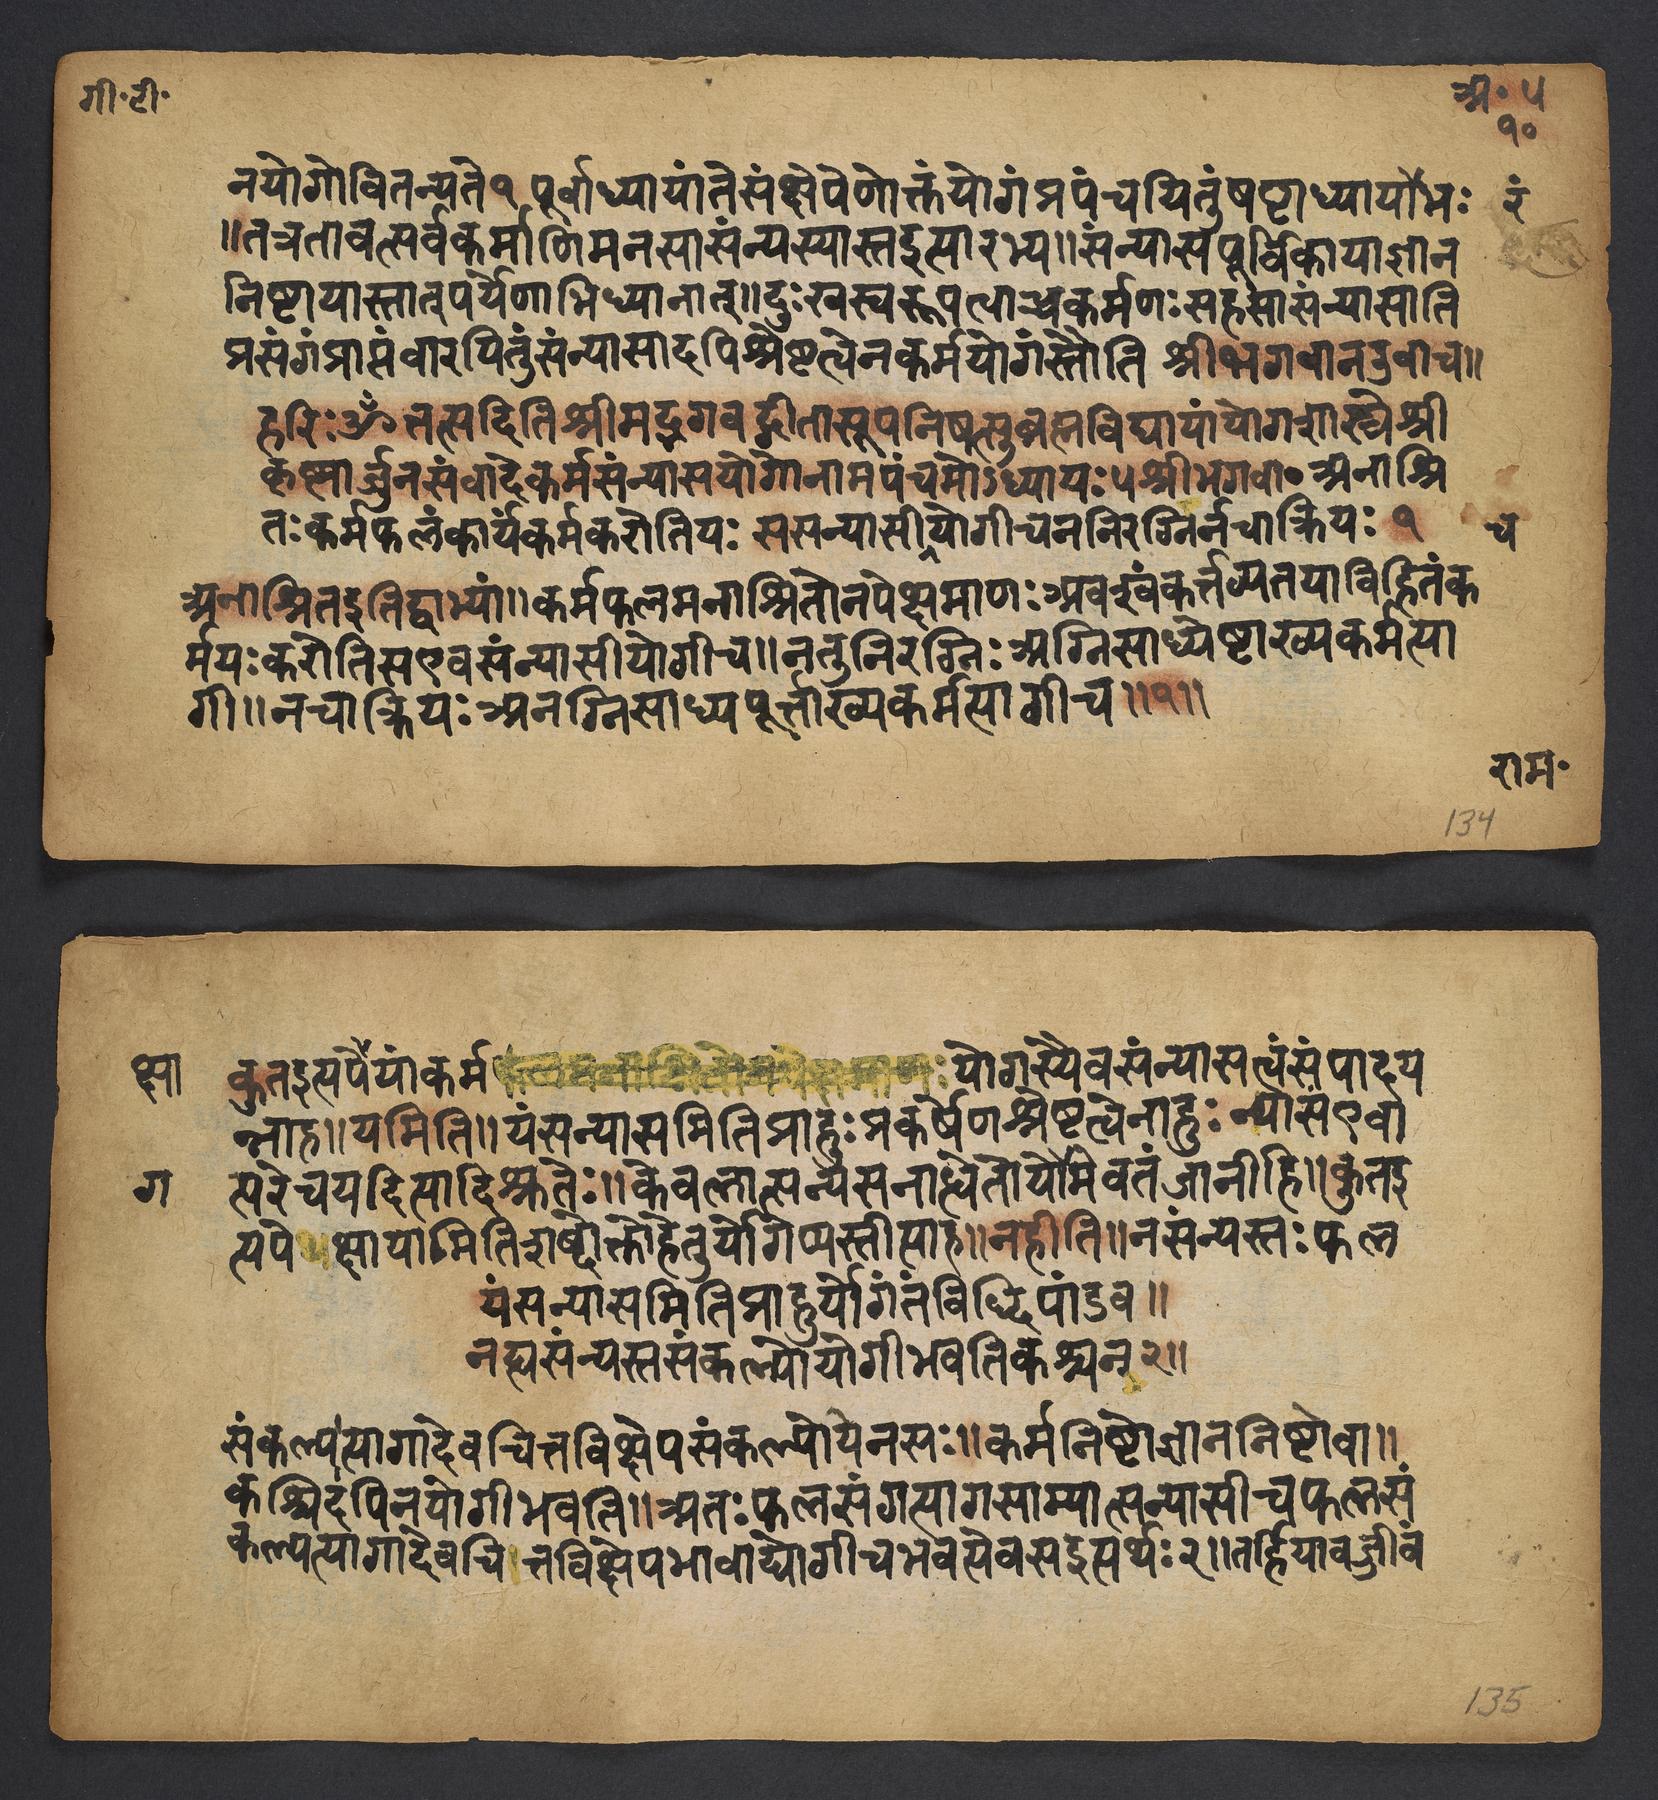 गी॰टी॰
अ॰ ५
१०
नयोगोवितन्यते१ पूर्वाध्यायांतेसंक्षेपेणोक्तंयोगंप्रपंचयितुंषष्टाध्यायोभः रं
॥तत्रतावत्सर्वकर्माणिमनसासंन्यस्यास्तइत्यारभ्य॥संन्यासपूर्विकायाज्ञान
निष्टायास्तात्पर्येणाभिध्यानात्॥दुःखस्वरूपत्वाच्चकर्मणःसहसासंन्यासाति
प्रसंगंप्राप्तंवारयितुंसंन्यासादपिश्रेष्टत्वेनकर्मयोगंस्तौति श्रीभगवानउवाच॥
हरिःॐ तत्सदितिश्रीमद्भगवद्गीतासूपनिषत्सुब्रह्मविद्यायांयोगशास्त्रेश्री
कृष्णार्जुनसंवादेकर्मसंन्यासयोगोनामपंचमोऽध्यायः५श्रीभगवा॰अनाश्रि
तःकर्मफलंकार्यंकर्मकरोतियः ससन्यासीयोगीचननिरग्निर्नचाक्रियः १ च
अनाश्रितइतिद्वाभ्यां॥कर्मफलमनाश्रितोनपेक्षमाणःअवश्यंकर्त्तव्यतयाविहितंक
र्मयःकरोतिसएवसंन्यासीयोगीच॥नतुनिरग्निःअग्निसाध्येष्टाख्यकर्मत्या
गी॥नचाक्रियःअनग्निसाध्यपूर्त्ताख्यकर्मत्यागीच॥१॥
राम॰
134
क्षा कुतइत्यपेयांकर्म योगस्यैवसंन्यासत्वंसंपादय
न्नाह॥यमिति॥यंसन्यासमितिप्राहुःप्रकर्षेणश्रेष्टत्वेनाहुःन्यासएवा
ग त्यरेचयदित्यादिश्रुतेः॥केवलात्सन्यसनाद्धेतोयोमेवतंजानीहि॥कुतइ
त्यपेक्षायामितिशब्दोक्तोहेतुर्योगेप्यस्तीत्याह॥नहीति॥नसंन्यस्तःफल
यंसन्यासमितिप्राहुर्योगंतंविद्धिपांडव॥
नह्यसंन्यस्तसंकल्पोयोगीभवतिकश्चन्२॥
संकल्पत्यागादेवचित्तविक्षेपसंकल्पोयेनसः॥कर्मनिष्टोज्ञाननिष्टोवा॥
कश्चिदपिनयोगीभवति॥अतःफलसंगत्यागसाम्यात्सन्यासीचफलसं
कल्पत्यागादेवचित्तविक्षेपभावाद्योगीचभवत्येवसइत्यर्थः२॥तर्हियावज्जीवं
135